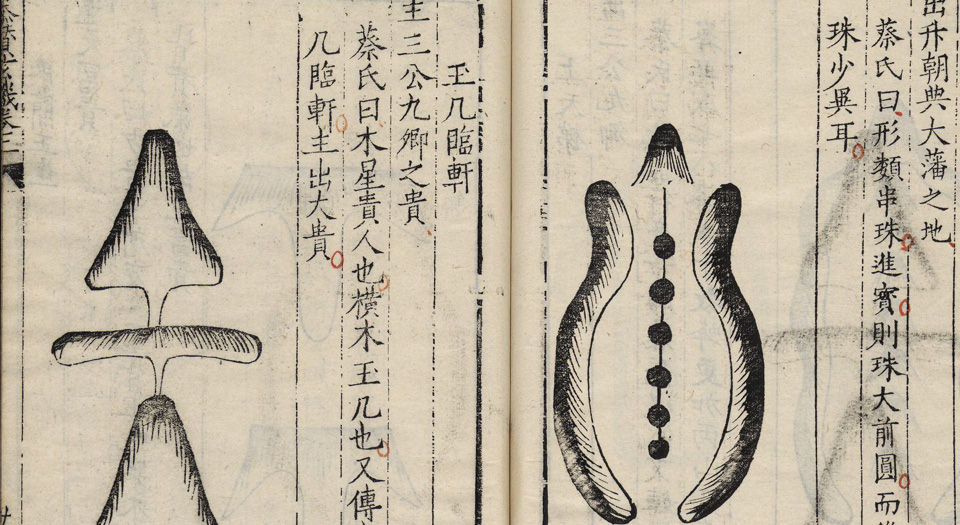 出升朝典大藩之地
蔡氏曰形類串珠進寳則珠大前圓而
珠少異耳
玉几臨軒
主三公九卿之貴
蔡氏曰木星貴人也橫木玉几也又傳
几臨軒主出大貴